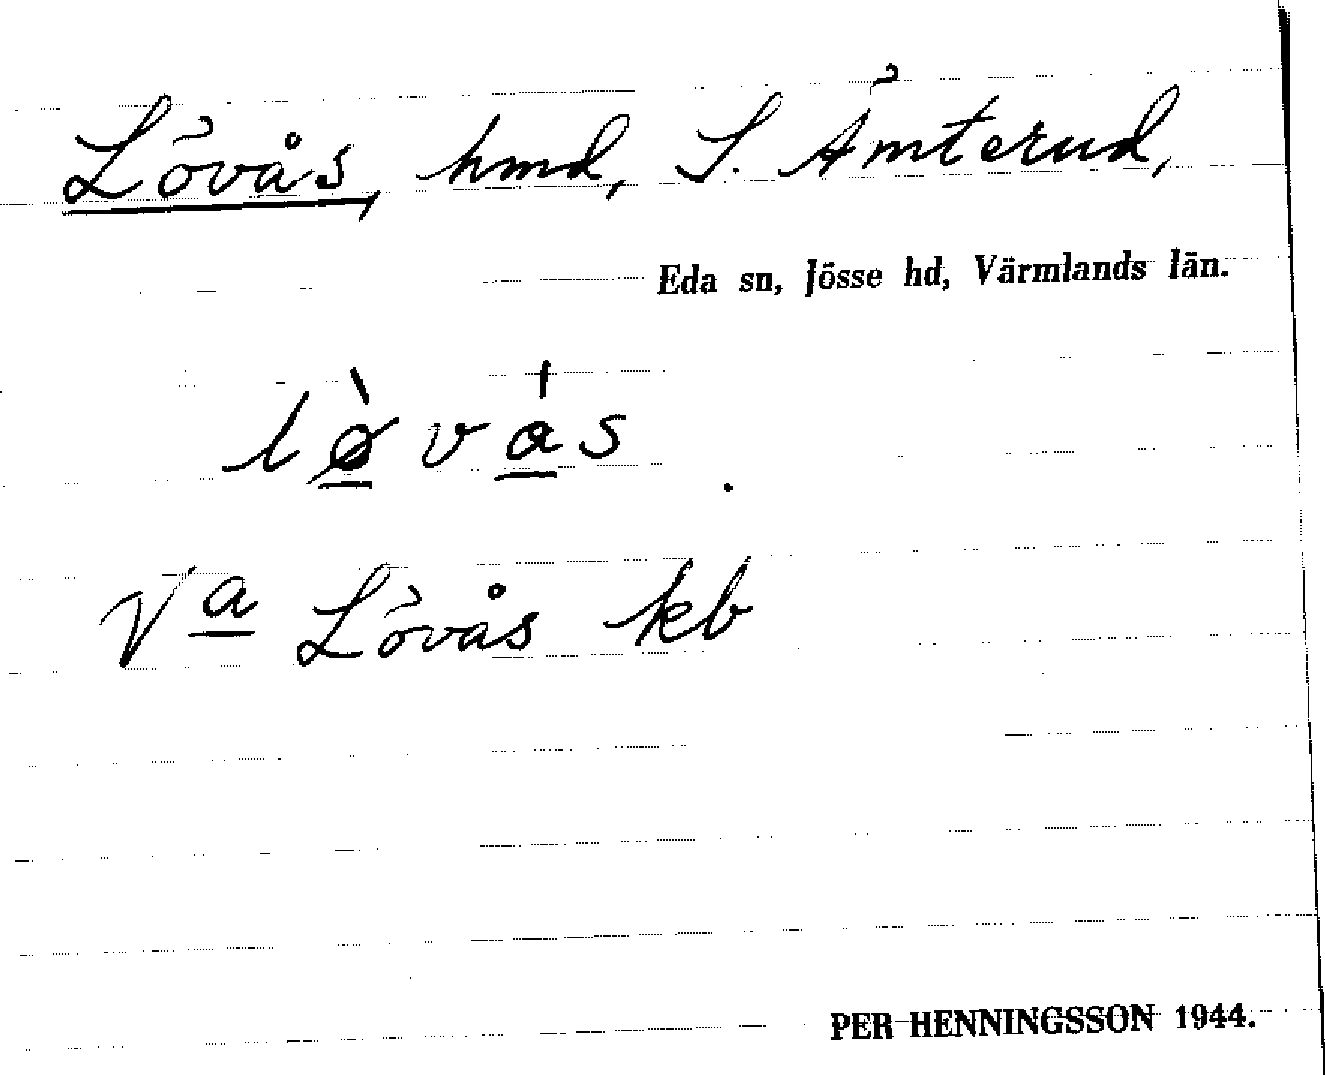 Lövås, hmd, S. Ämterud,
Eda sn, Jösse hd, Värmlands län.
lø̀vás
Va Lövås kb
PER HENNINGSSON 1944.